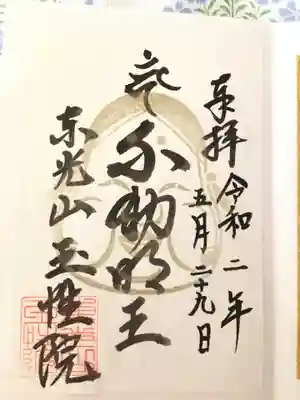 奉拝 令和二年
五月二十九日
不動明王
東光山 玉性院